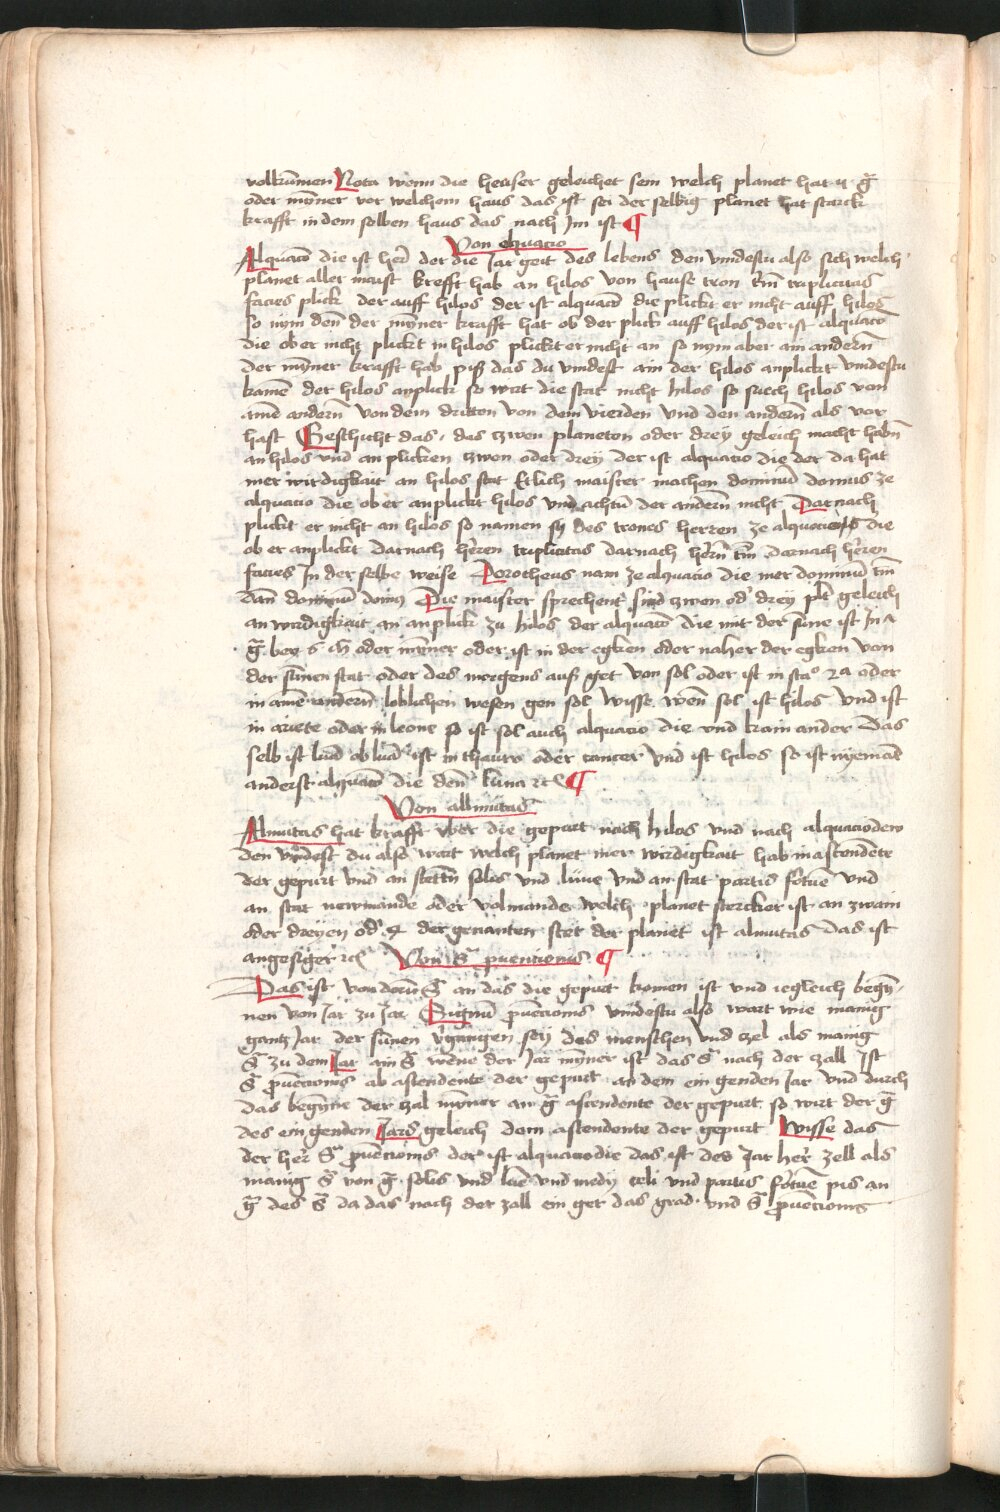 volkumen Nota wenn die hewser geleichet sein welch planet hat v g̃
oder mÿner vor welchem haus das ist sei der selbig planet hat starck
krafft in dem selben haus das nach Im ist ¶
Von alquacio
Alquacio die ist her der die Jar geit des lebens den vindestu also sich welch
planet aller maist krefft hab an hilos von hause tron tm̃ triplicitas
facies plick der auff hilos der ist alquaco die plickt er nicht auff hilos
so nym deñ der mÿner krafft hat ob der plick auff hilos der ist alquaco
die ob er nicht plickt in hilos plickt er nicht an so nym aber ain andern
der mÿner krafft hab piß das du vindest ain der hilos anplickt vindestu
kainē der hilos anplick so wirt die stat nicht hilos so such hilos von
ainē andern von dem dritten von dem vierden vnd den andern als vor
hast Geschicht das das zwen planeten oder drey geleich macht habñ
an hilos vnd an plicken zwen oder drey der ist alquacio die der da hat
mer wirdigkait an hilos stat Etlich maister machen dominū domus ze
alquacio die ob er anplickt hilos vnd achtñ der andern nicht Darnach
plickt er nicht an hilos so namen sy des trones herren ze alquocio die
ob er anplickt darnach herren triplicitas darnach herñ tm̃ darnach herren
facies In der selbe weise Dorotheus nam ze alquacio die mer dominū tm̃
dañ dominū domꝰ Die maister sprechent sind zwen od' drey plt geleich
an wirdigkait an anplick zu hilos der alquaco die mit der sune ist In
g̃ bey 6 oder mÿner oder ist in der egken oder naher der egken von
der sunen stat oder des morgens auß get von sol oder ist in sta° 2a oder
in ainē andern loblichen wesen gen sol wisst wen sol ist hilos vnd ist
in ariete oder in leone so ist sol auch alquacio die vnd kain ander Das
selb ist lun̄ ob lun̄ ist in thauro oder cancer vnd ist hilos so ist nyemād
anderst alquaco die deñ luna ꝛc ¶
Von allmutas
Almutas hat krafft vber die gepurt nach hilos vnd nach alquaciodem
den vindest du also wart welch planet mer wirdigkait hab in ascendente
der gepurt vnd an stetñ solis vnd lune vnd an stat partis fortune vnd
an stat newmande oder volmande welch planet stercker ist an zwain
oder dreyen od' 4 der genanten stet der planet ist almutas das ist
angesiger ꝛc Von S̃ p̃uencionis ¶
Das ist von dem S̃ an das die gepurt komen ist vnd iegleich begÿ
nen von Jar zu Jar Signū p̃uencionis vindestu also wart wie manig
gantz Jar der sunen v'gangen sey des menschen vnd zel als manig
S̃ zu dem Jar ain S̃ wene der Jar mÿner ist das S̃ nach der zall Ist
S̃ p̃uencionis ab ascendente der gepurt an dem ein genden Jar vnd durch
das begÿne der zal mÿner an g̃ ascendente der gepurt so wirt der g̃
des ein genden Jars geleich dem ascendente der gepurt Wisse das
der her S̃ p̃uencionis der ist alquacodie das ist des Jar her zell als
manig S̃ von g̃ solis vnd lune vnd medy celi vnd partis fortune pis an
g̃ des S̃ da das nach der zall ein get das grad vnd S̃ p̃uencionis